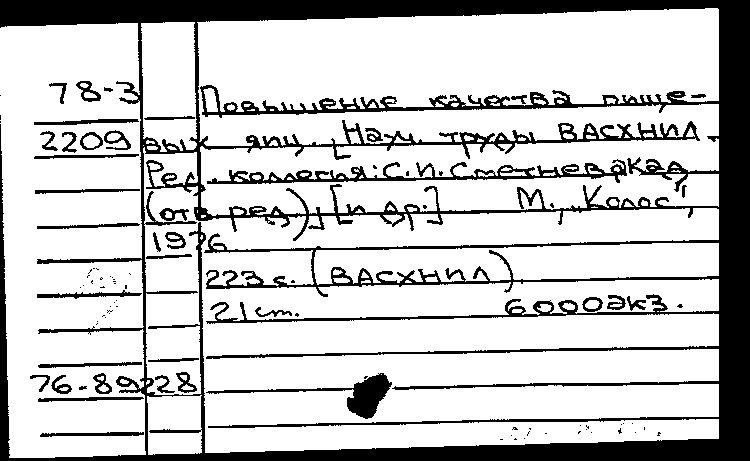 78-3 Повышение качества пище-
2209 вых яиц. [Науч. труды ВАСХНИЛ.
Ред. коллегия: С.И. Сметнев акад.
(отв. ред), [и др.] М., "Колос",
1976
223 с. (ВАСХНИЛ)
21 см. 6000 экз.
76-89228